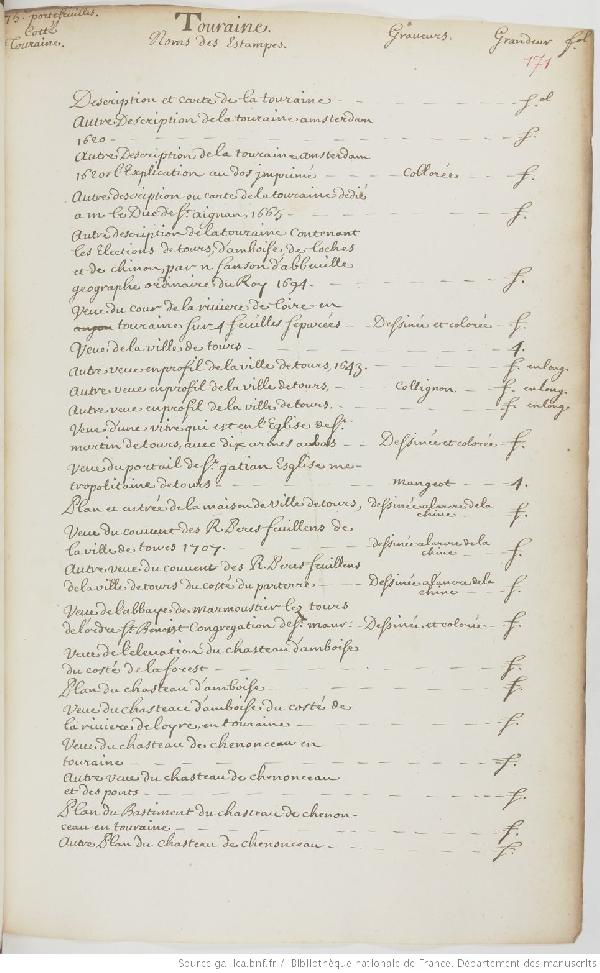 75. portefeuilles. Touraine.
Cotté Noms des Estampes. Graveurs. Grandeur fol.
Touraine. 171
Description et carte de la touraine - - - f.ol
Autre Description de la touraine amsterdam
1620 - - - f.
Autre Description de la touraine amsterdam
1620 l'Explication au dos imprimé - - Collorée - - f.
Autre description ou carte de la touraine dedié
a mr le Duc de St aignan, 1665 - - - f.
Autre description de la touraine contenant
les Elections de tours, d'amboise, de loches
et de chinon, par n sanson d'abbeuille
geographe ordinaire du Roy 1694 - - - f.
Veue du cour de la riviere de loire en
anjou touraine sur 4 feuilles separées - - Dessinée et colorée - f.
Veue de la ville de tours - - - 4.
Autre veue en profil de la ville de tours, 1643. - - f. en long.
Autre veue en profil de la ville de tours, - - Collignon - - f. en long.
Autre veue en profil de la ville de tours. - - f. en long
Veue d'une vitre qui est en l'Eglise de St
martin de tours, avec dix armes au bas - - Dessinée et colorée f.
Veue du portail de St gatian Esglise me-
tropolitaine de tours - - mangeot - - 4.
Plan et entrée de la maison de ville de tours, dessinée a l'ancre de la chine - f.
Veue du couvent des R. Peres feuillens de
la ville de tours 1707. - - dessinée a l'ancre de la chine - f.
Autre veue du couvent des R. Peres feuillens
de la ville de tours du costé du parterre - - Dessinée a l'ancre de la chine - f.
Veue de l'abbaye de marmoustier lez tours
de l'ordre St Benoist Congregation de St maur - Dessinée et colorée - f.
Veue de l'elevation du chasteau d'amboise
du costé de la forest - - - f.
Plan du chasteau d'amboise - - - f.
Veue du chasteau d'amboise du costé de
la riviere de loyre, en touraine - - - f.
Veue du chasteau de chenonceau en
touraine - - - f.
Autre veue du chasteau de chenonceau
et des ponts - - - f.
Plan du Bastiment du chasteau de chenon-
ceau en touraine - - - f.
Autre Plan du chasteau de chenonceau - - - f.
Source gallica.bnf.fr / Bibliothèque nationale de France. Département des manuscrits